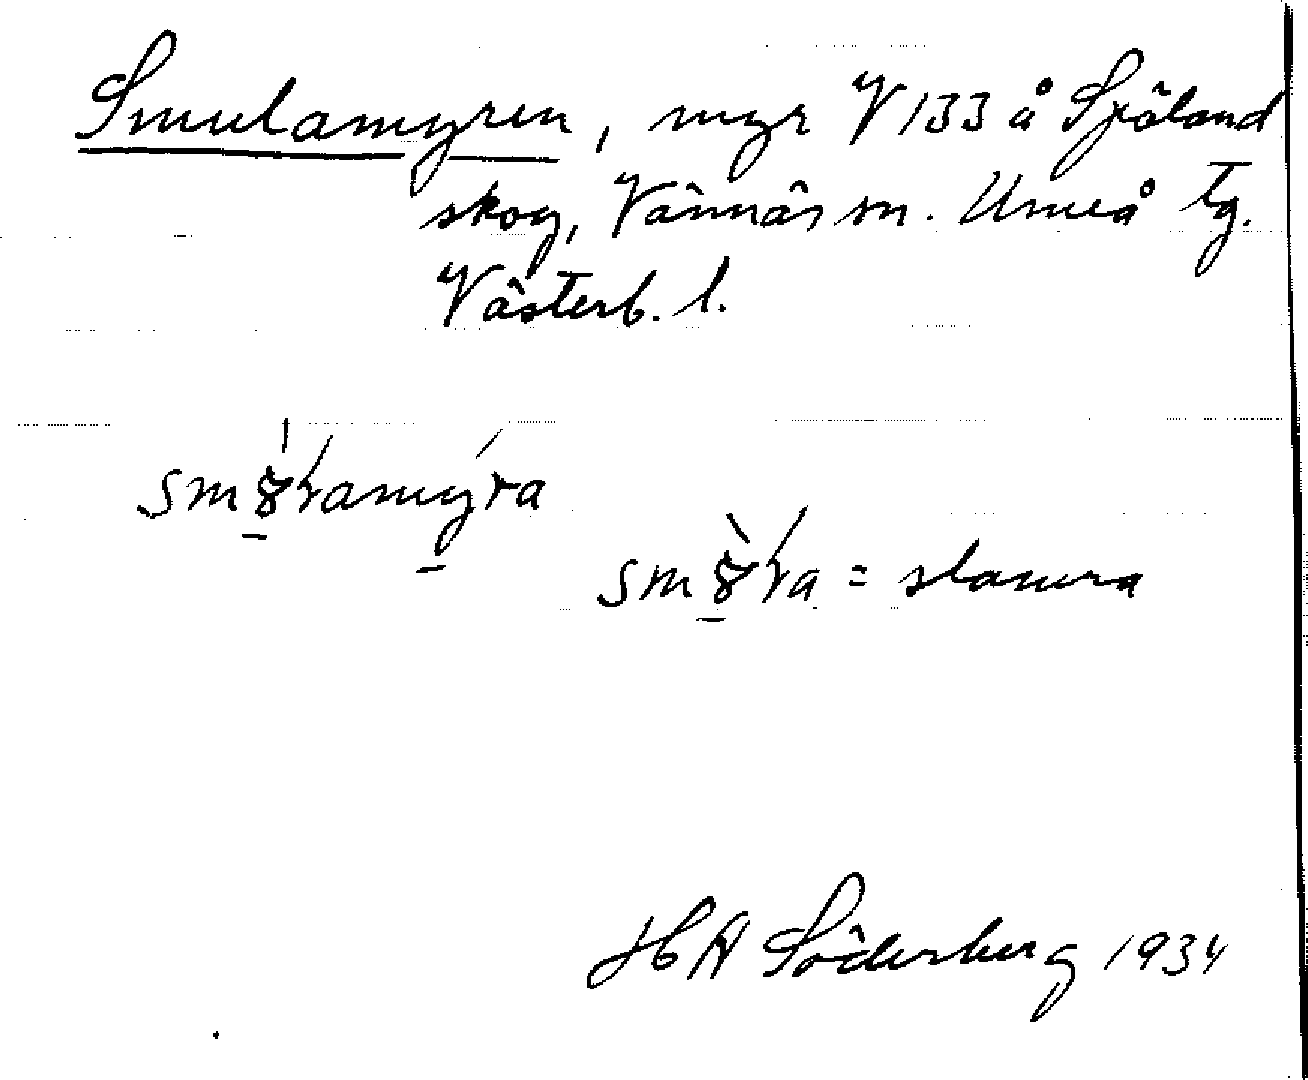 Smulamyren, myr V 133 å Spöland
skog, Vännäs sn. Umeå tg.
Västerb. l.
= slamra
H A Söderberg 1934